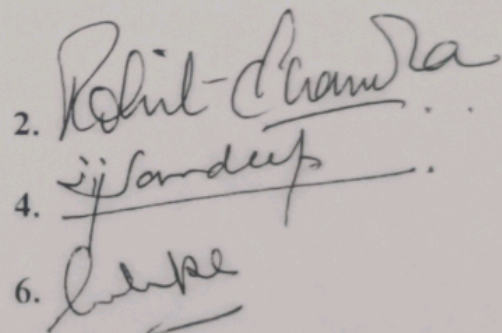 2. Rohit Chandra
4. Sandeep
6.